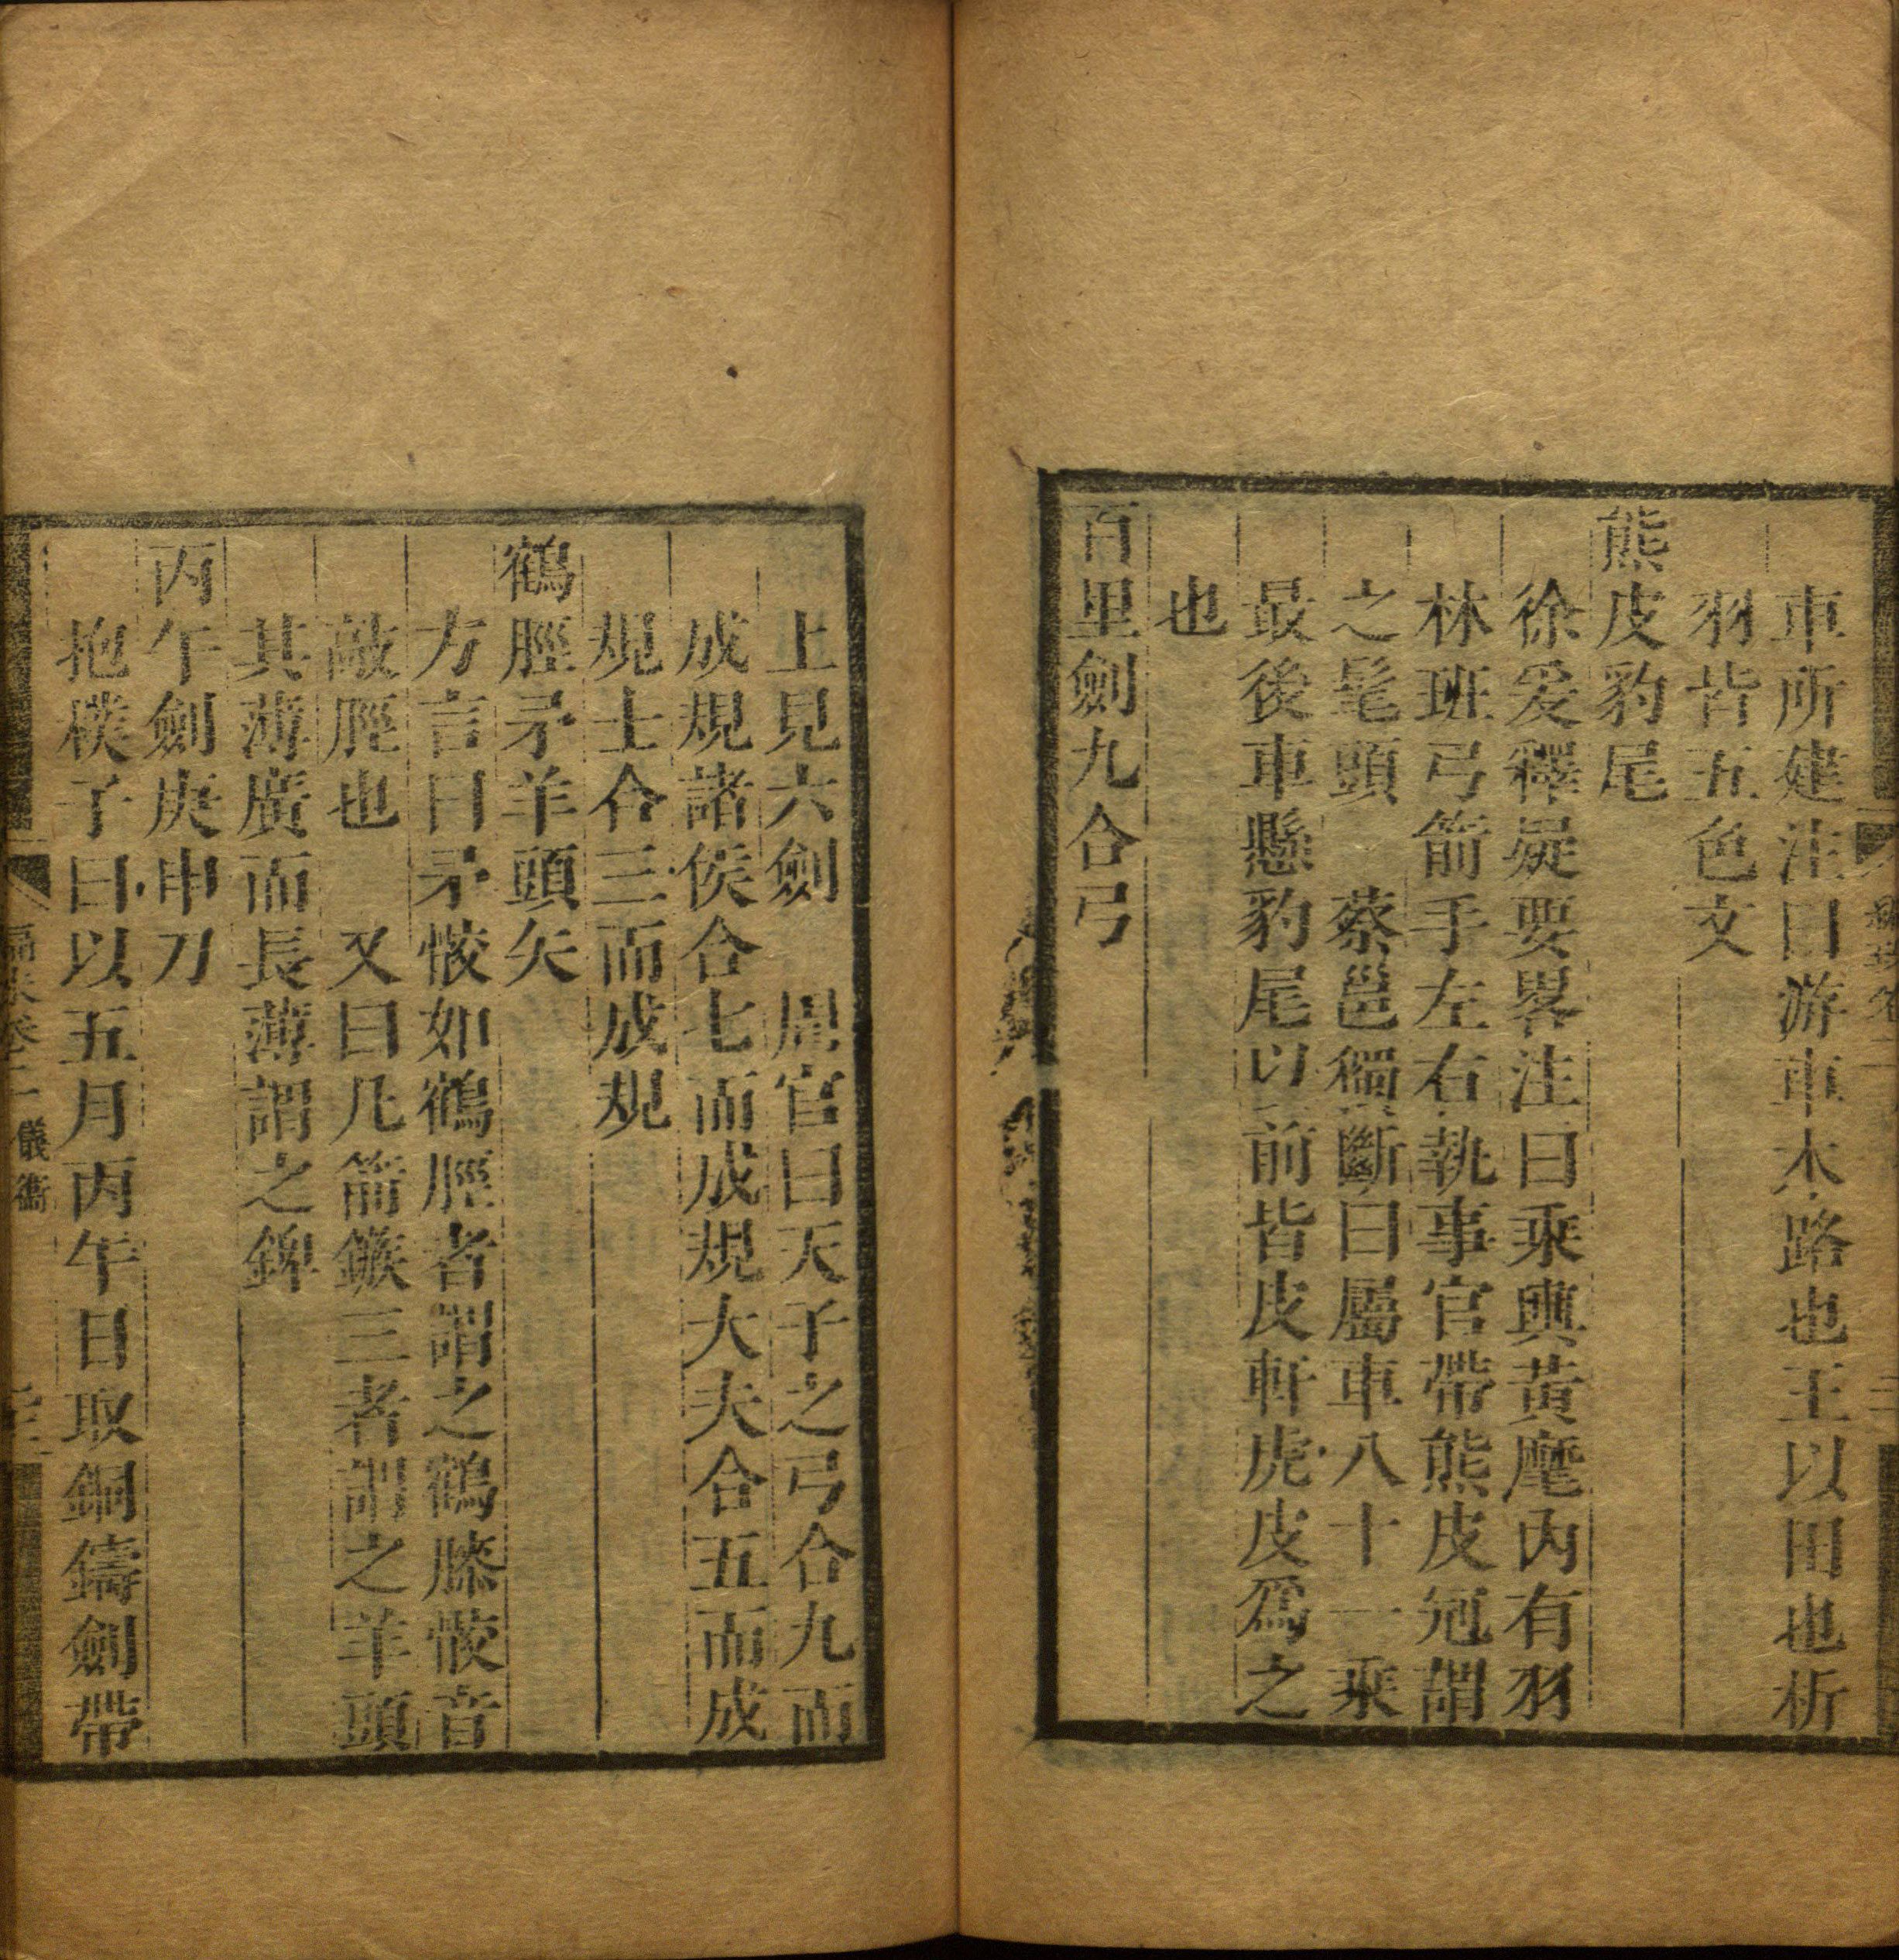 車所建注曰游車木路也王以田也析
羽皆五色文
熊皮豹尾
徐爰釋疑要畧注曰乘輿黃麾內有羽
林班弓箭手左右執事官帶熊皮冠謂
之髦頭　蔡邕獨斷曰屬車八十一乘
最後車懸豹尾以前皆皮軒虎皮爲之
也
百里劍九合弓
上見六劍　周官曰天子之弓合九而
成規諸侯合七而成規大夫合五而成
規士合三而成規
鶴脛矛羊頭矢
方言曰矛骹如鶴脛者謂之鶴膝骹音
敲脛也　又曰凡箭鏃三者謂之羊頭
其薄廣而長薄謂之錍
丙午劍庚申刀
抱樸子曰以五月丙午日取銅鑄劍帶
卷二 儀衞